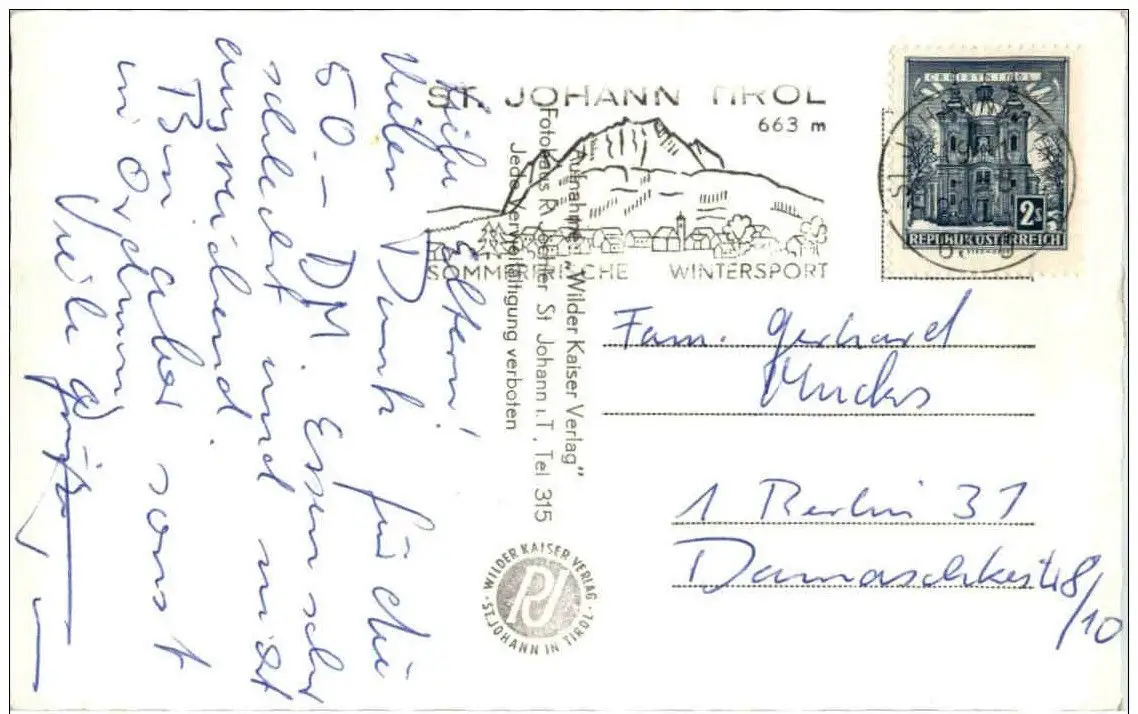 Liebe Eltern!
Vielen Dank für die
50,- DM. Essen sehr
schlecht und nicht
ausreichend.
Bin aber sonst
in Ordnung
Viele Grüße
ST. JOHANN TIROL
663 m
SOMMERFRISCHE WINTERSPORT
Aufnahme: "Wilder Kaiser Verlag"
Fotohaus R. Jöchler St Johann i. T. Tel 315
Jede Vervielfältigung verboten
WILDER KAISER VERLAG · ST. JOHANN IN TIROL ·
CHRISTKINDL
2s
REPUBLIK ÖSTERREICH
Fam. Gerhard
1 Berlin 31
Damaschkestr 8/10